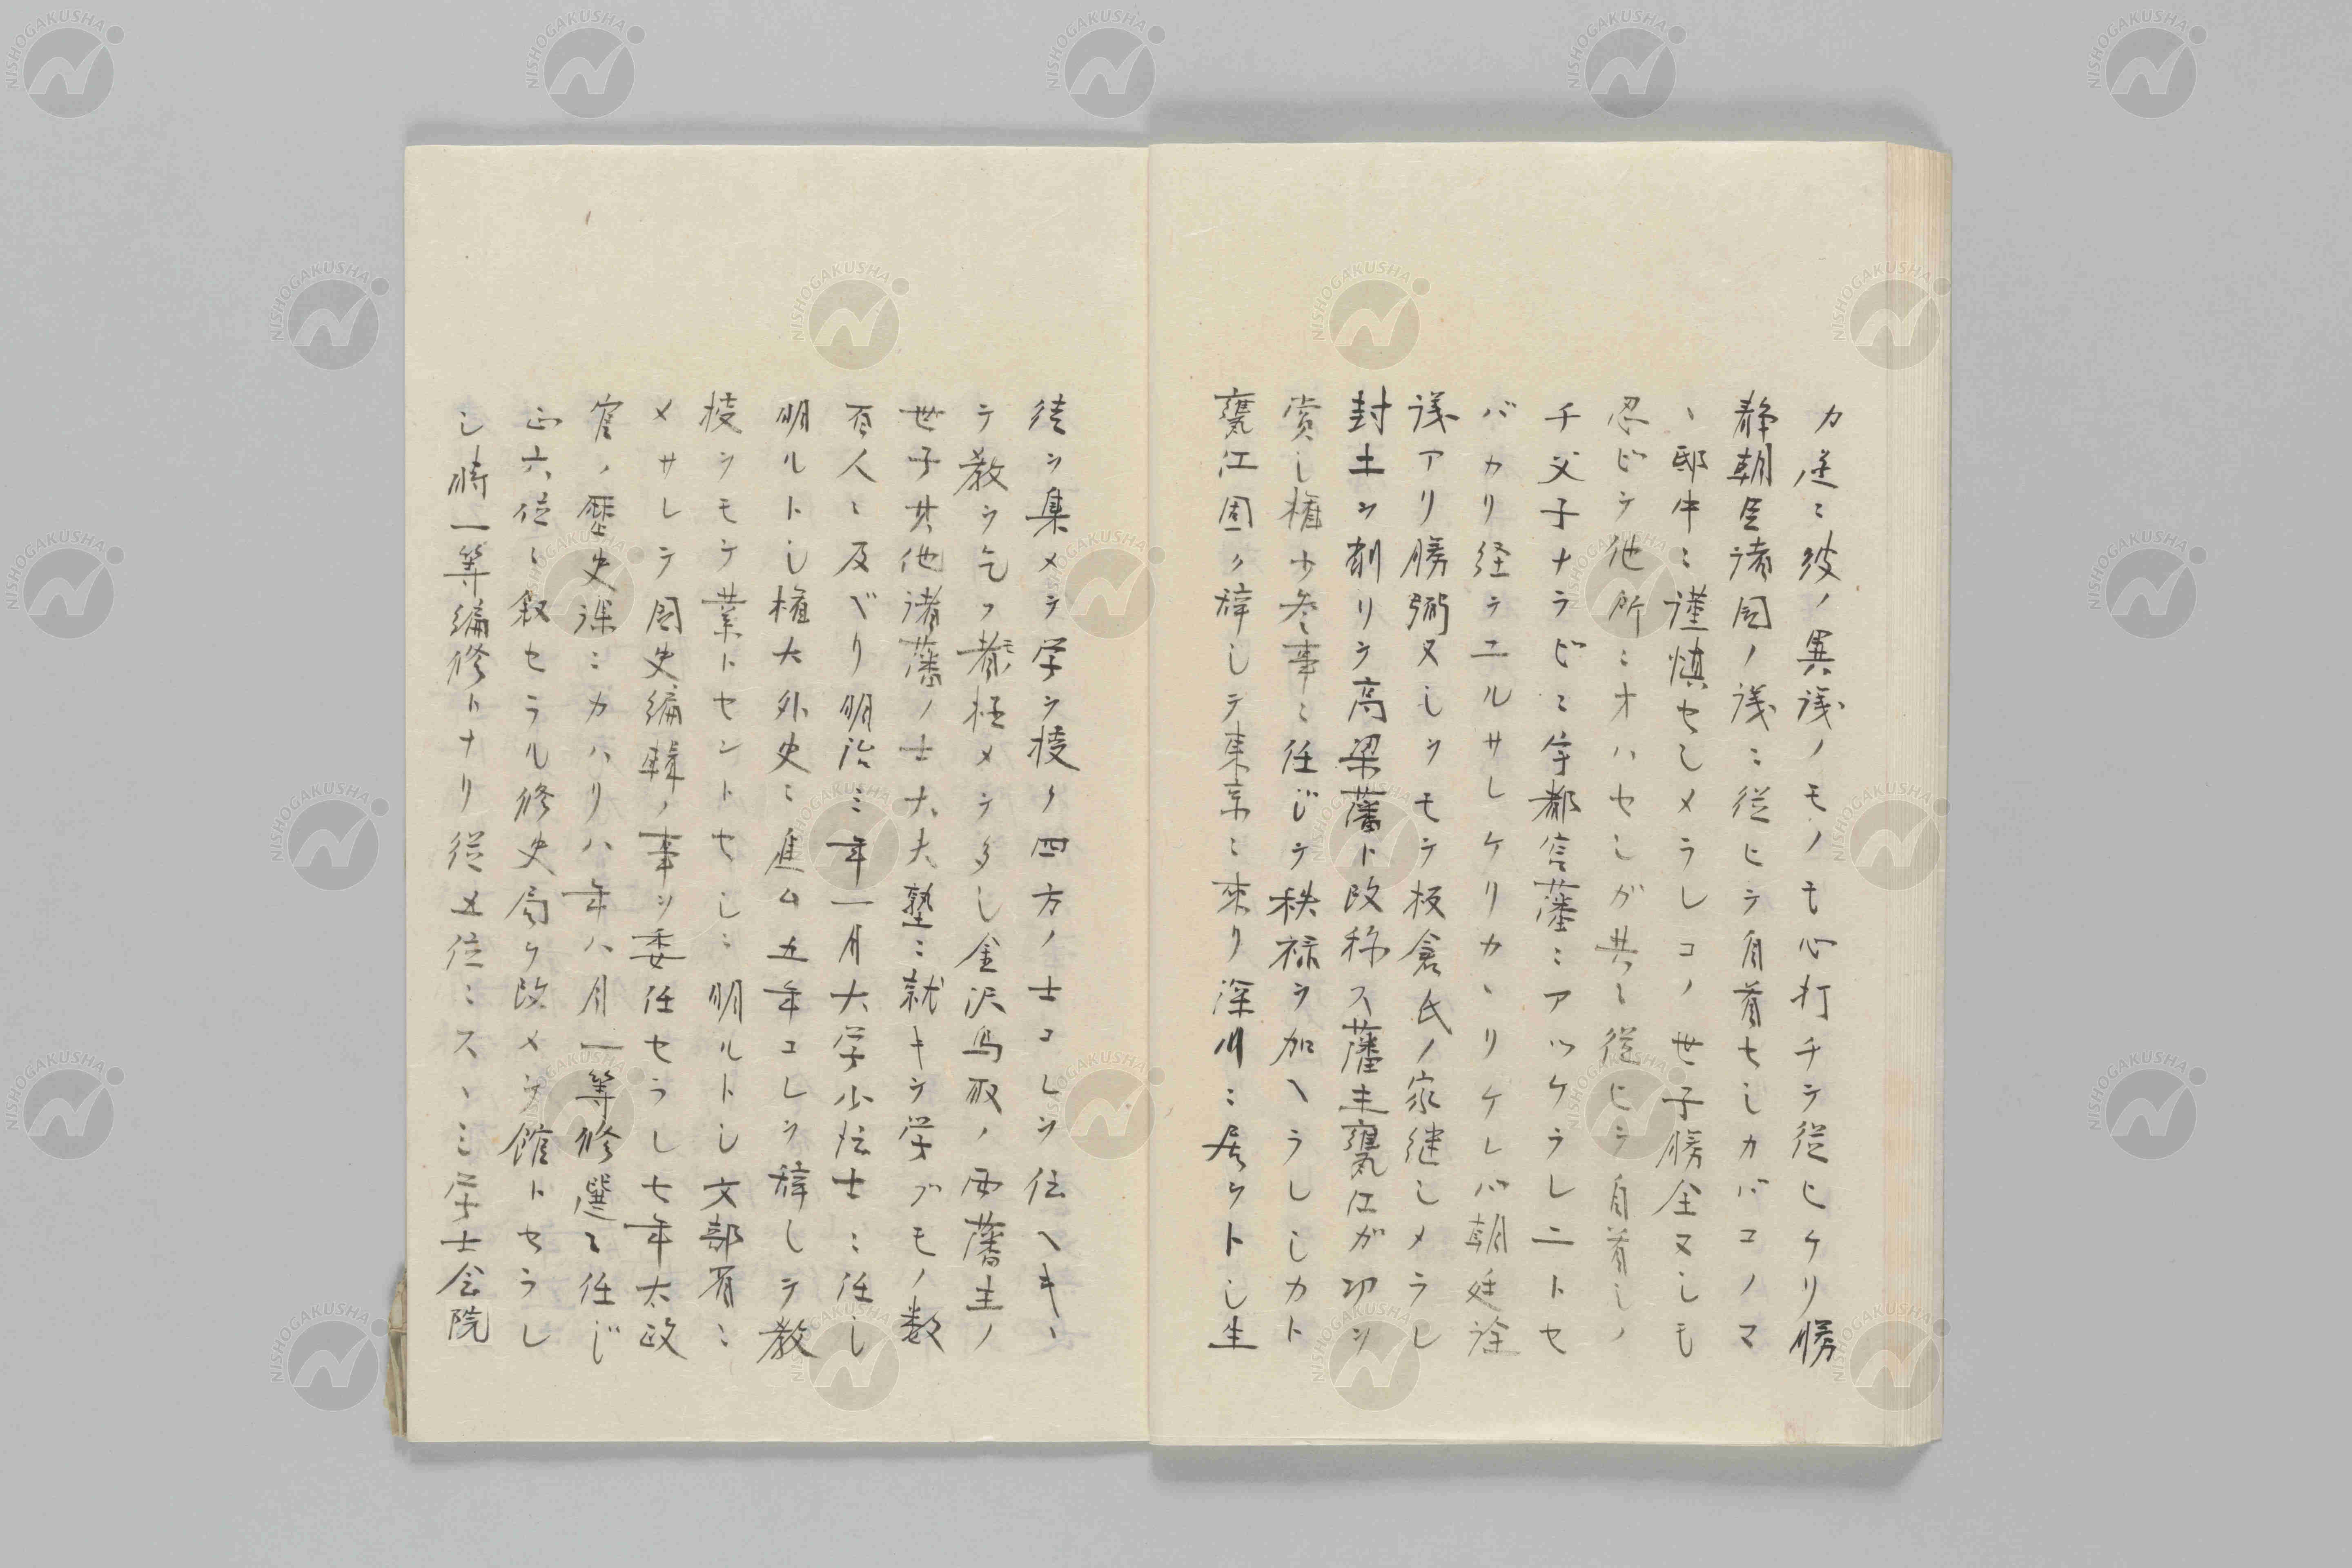 カ遂ニ彼ノ異議ノモノモ心打チテ従ヒケリ勝
静朝臣諸周ノ議ニ従ヒテ自首セシカバコノマ
ヽ邸中ニ謹慎セシメラレコノ世子勝全又シモ
忍ビテ他所ニオハセシガ共ニ従ヒテ自首シノ
チ父子ナラビニ宇都宮藩ニアツケラレ二トセ
バカリ経テユルサレケリカヽリケレバ朝廷詮
議アリ勝弼ヌシヲモテ板倉氏ノ家継シメラレ
封土ヲ削リテ高梁藩ト改称ス藩主甕江ガ功ヲ
賞シ権少参事ニ任ジテ秩禄ヲ加ヘラレシカト
甕江固ク辞シテ東京ニ来リ深川ニ居ヲトシ生
徒ヲ集メテ学ヲ授ク四方ノ士コレヲ伝ヘキヽ
テ教ヲ乞フ者極メテ多シ金沢鳥取ノ両藩主ノ
世子其他諸藩ノ士大夫塾ニ就キテ学ブモノ数
百人ニ及ベリ明治三年一月大学少博士ニ任シ
明ルトシ権大外史ニ進ム五年コレヲ辞シテ教
授ヲモテ業トセントセシニ明ルトシ文部省ニ
メサレテ国史編輯ノ事ヲ委任セラレ七年太政
官ノ歴史課ニカハリ八年八月一等修選ニ任ジ
正六位ニ叙セラル修史局ヲ改メテ館トセラレ
シ時一等編修トナリ従五位ニスヽミ学士会院
NISHOGAKUSHA